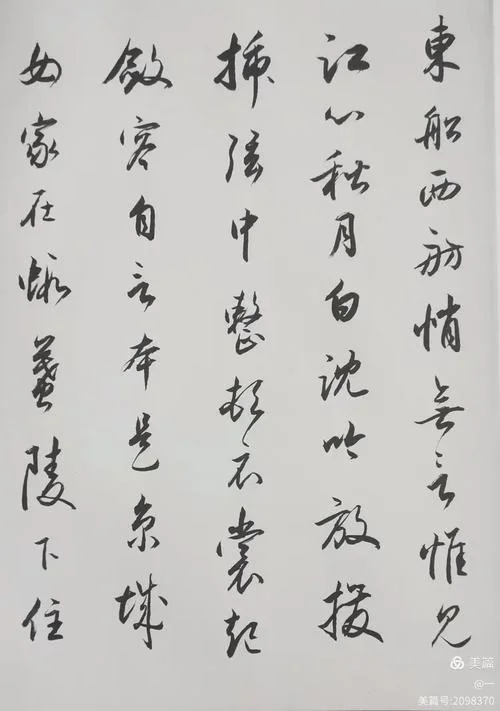 東船西舫悄無言惟見
江心秋月白沈吟放撥
插弦中整頓衣裳起
斂容自言本是京城
女家在蝦蟇陵下住
美篇
@一
美篇号:2098370